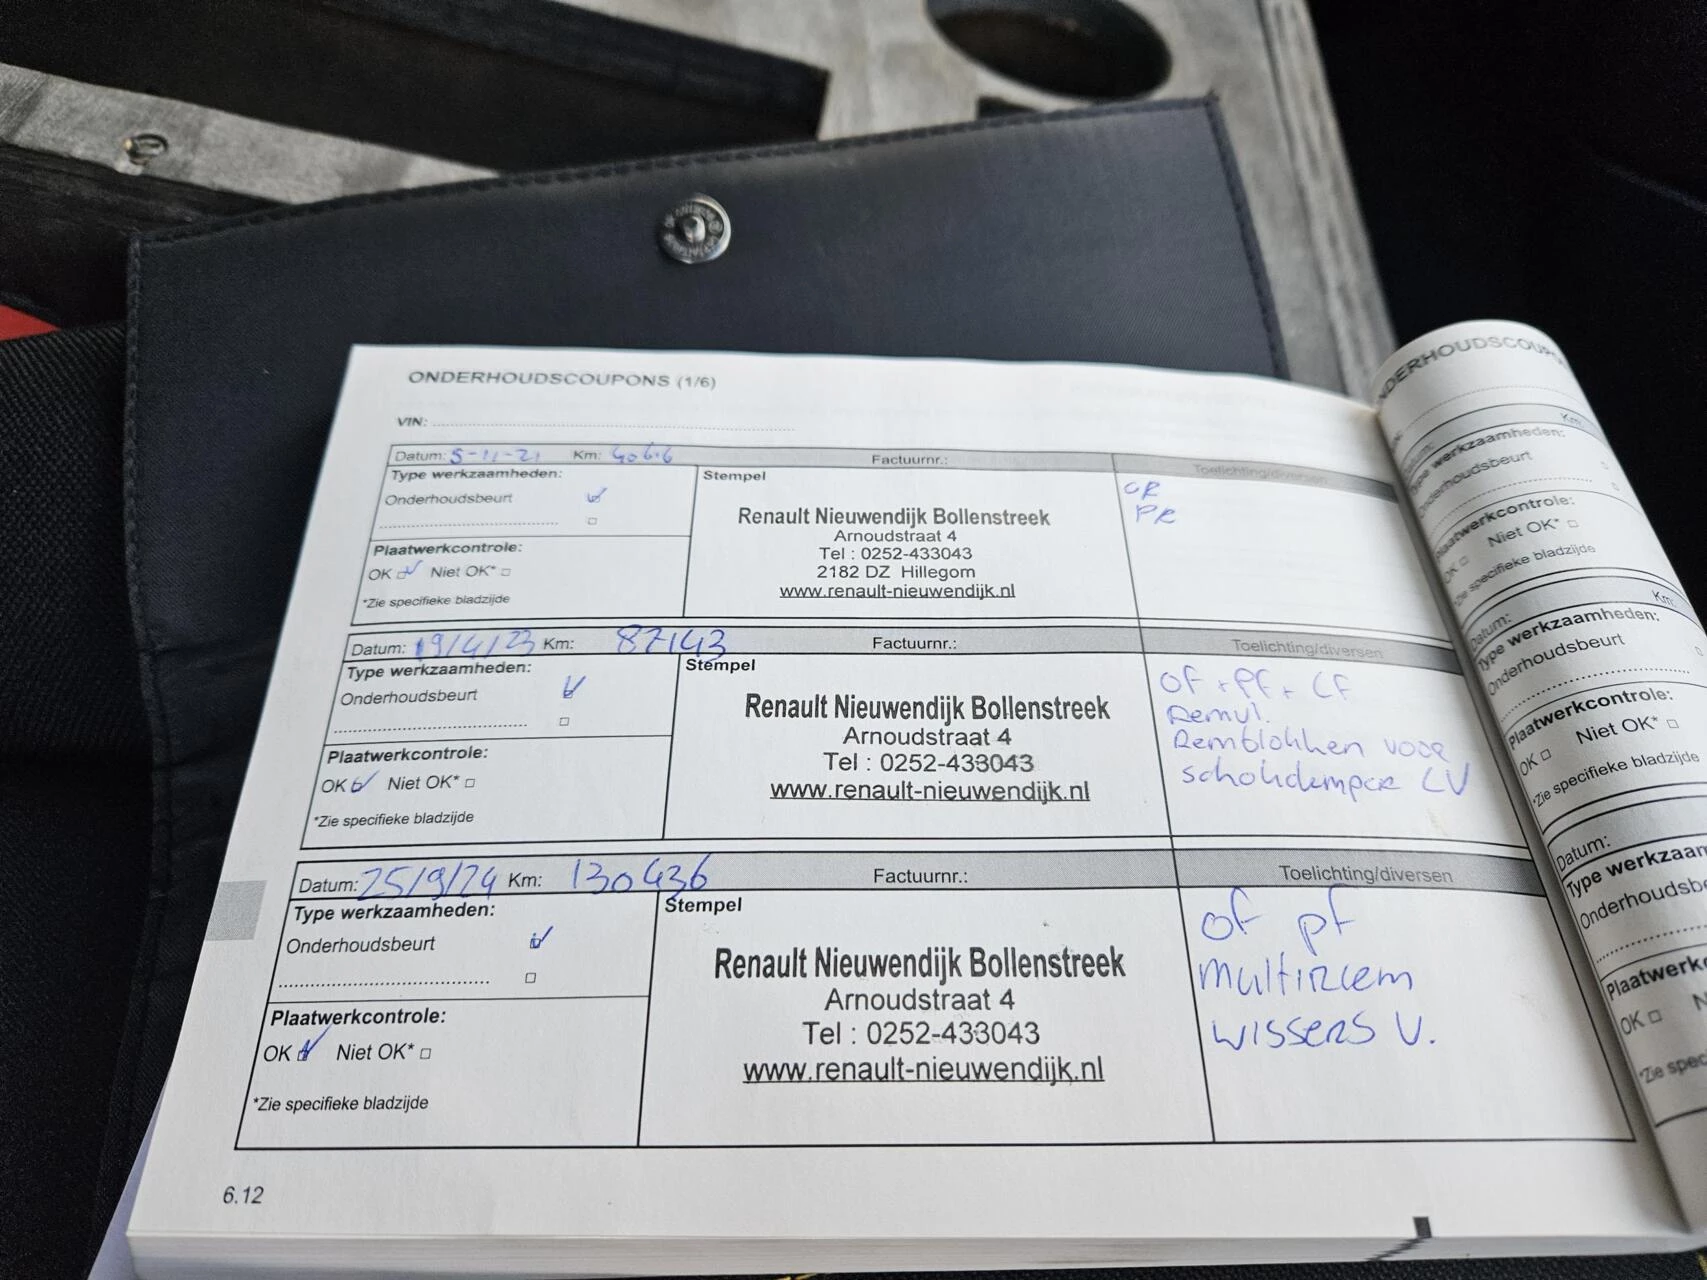 ONDERHOUDSCOUPONS (1/6)
VIN:
Datum: 5-11-21 Km: 40616 Factuurnr.: Toelichting/diversen
Type werkzaamheden:
Onderhoudsbeurt
Plaatwerkcontrole:
OK Niet OK*
*Zie specifieke bladzijde
Stempel
Renault Nieuwendijk Bollenstreek
Arnoudstraat 4
Tel : 0252-433043
2182 DZ Hillegom
www.renault-nieuwendijk.nl
PR
Datum: 19/4/23 Km: 87143 Factuurnr.: Toelichting/diversen
Type werkzaamheden:
Onderhoudsbeurt
Plaatwerkcontrole:
OK Niet OK*
*Zie specifieke bladzijde
Stempel
Renault Nieuwendijk Bollenstreek
Arnoudstraat 4
Tel : 0252-433043
www.renault-nieuwendijk.nl
OF + PF +
Remvl.
Remblokken voor
LV
Datum: 25/9/24 Km: 130436 Factuurnr.: Toelichting/diversen
Type werkzaamheden:
Onderhoudsbeurt
Plaatwerkcontrole:
OK Niet OK*
*Zie specifieke bladzijde
Stempel
Renault Nieuwendijk Bollenstreek
Arnoudstraat 4
Tel : 0252-433043
www.renault-nieuwendijk.nl
of pf
multiriem
wissers V.
6.12
Km:
Type werkzaamheden:
Onderhoudsbeurt
Plaatwerkcontrole:
OK Niet OK*
*Zie specifieke bladzijde
Datum: Km:
Type werkzaamheden:
Onderhoudsbeurt
Plaatwerkcontrole:
OK Niet OK*
*Zie specifieke bladzijde
Datum:
OK